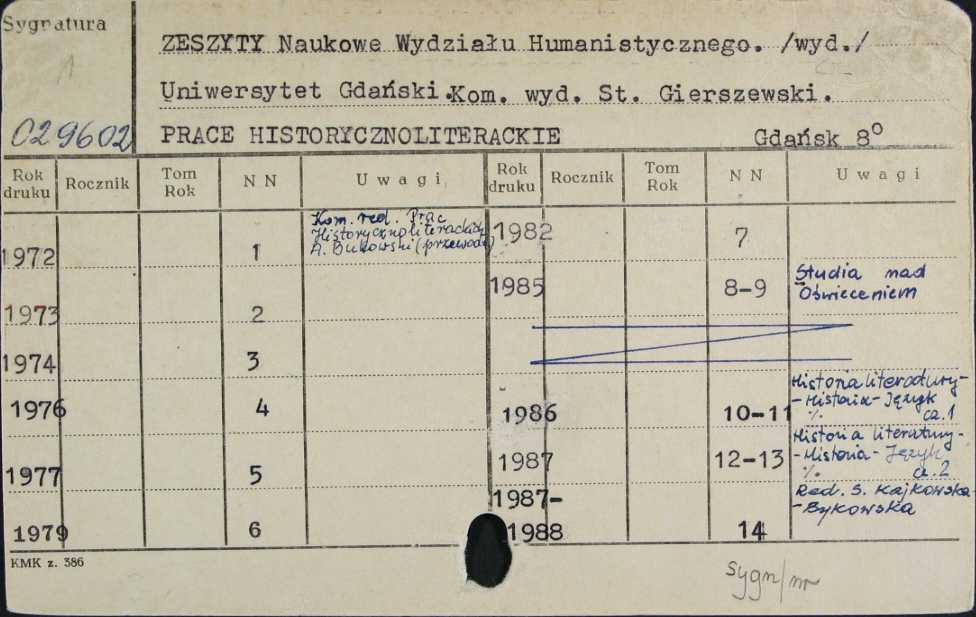 Sygnatura
1
029602
ZESZYTY Naukowe Wydziału Humanistycznego. /wyd./
Uniwersytet Gdański.Kom. wyd. St. Gierszewski.
PRACE HISTORYCZNOLITERACKIE Gdańsk 8°
Rok druku Rocznik Tom Rok N N Uwagi Rok druku Rocznik Tom Rok N N Uwagi
1972 1 Kom. red. Prac
Historycznoliterackich
A. Bukowski (przewodn.)
1973 2
1974 3
1976 4
1977 5
1979 6
1982 7
1985 8-9 Studia nad
Oświeceniem
1986 10-11 Historia literatury-
-Historia-Język
%. cz.1
1987 12-13 Historia literatury-
-Historia-Język
%. cz.2
1987-
1988 14 Red. S. Kajkowska-
-Bykowska
KMK z. 386
sygn/nr